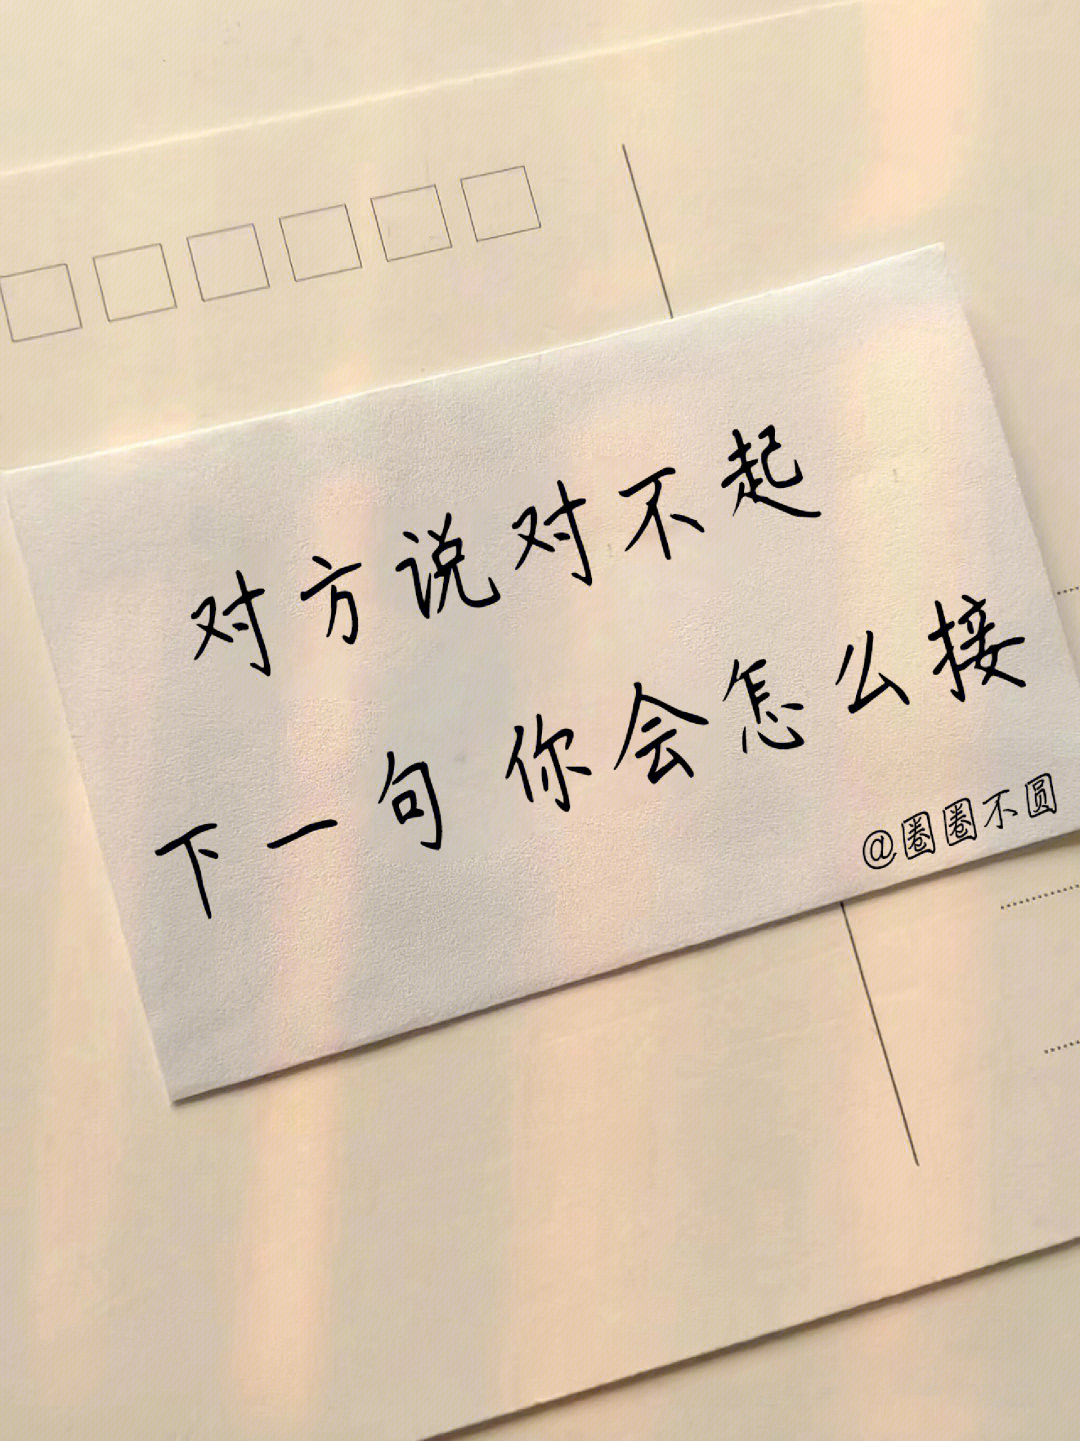 对方说对不起
下一句 你会怎么接
@圈圈不圆